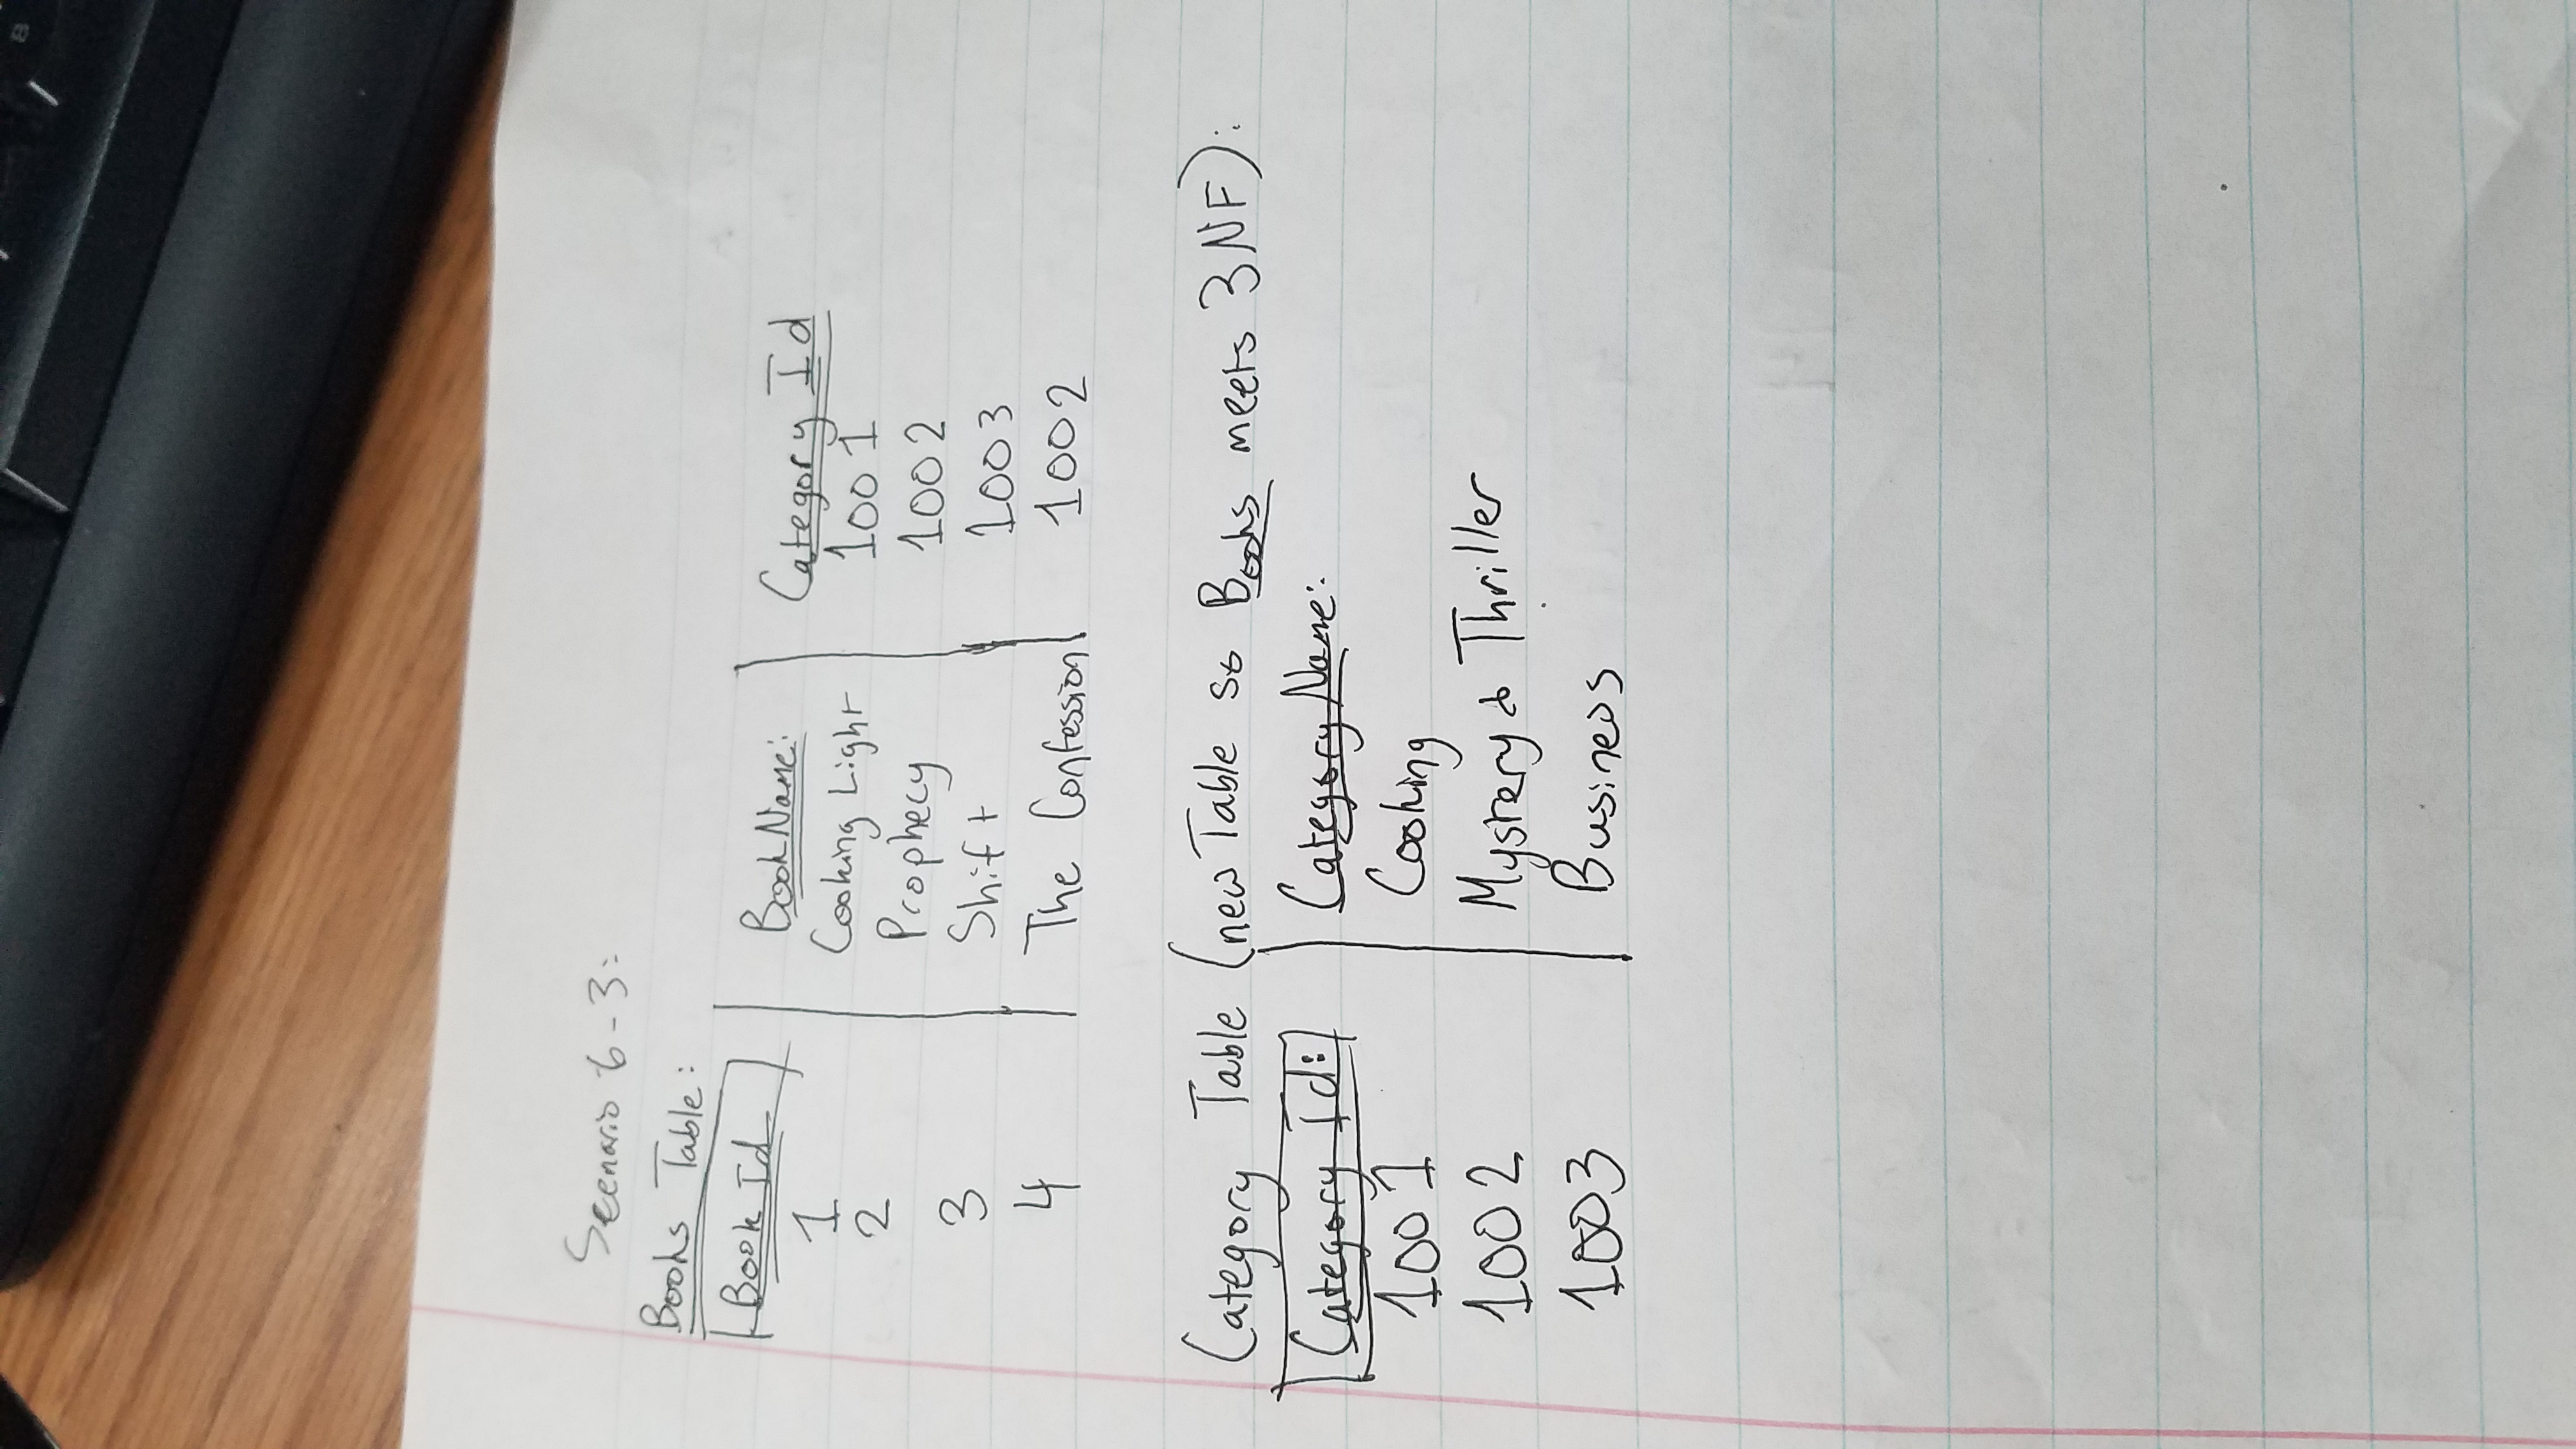 Scenario 6-3:
Books Table:
Book Id BookName: Category Id
1 Cooking Light 1001
2 Prophecy 1002
3 Shift 1003
4 The Confession 1002
Category Table (new Table so Books meets 3NF):
Category Id: Category Name:
1001 Cooking
1002 Mystery & Thriller
1003 Business
B